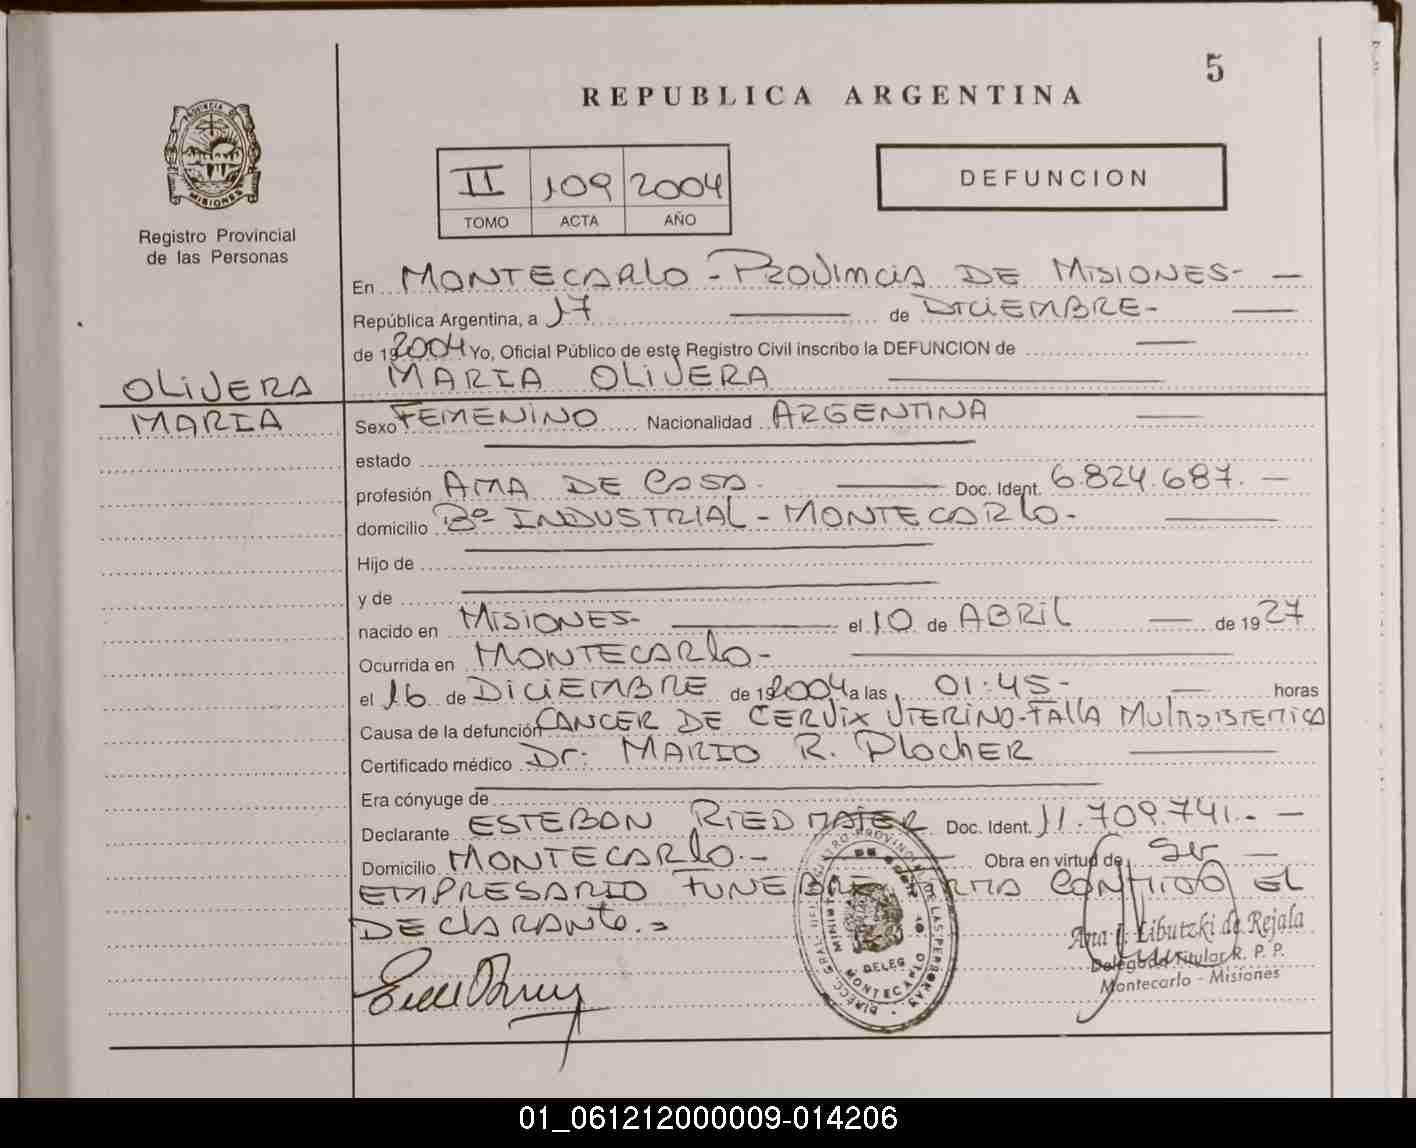 5
REPUBLICA ARGENTINA
PROVINCIA DE
MISIONES
Registro Provincial
de las Personas
II 109 2004
TOMO ACTA AÑO
DEFUNCION
En MONTECARLO - PROVINCIA DE MISIONES-
República Argentina, a 17 de DICIEMBRE-
de 192004 Yo, Oficial Público de este Registro Civil inscribo la DEFUNCION de
OLIVERA
MARIA OLIVERA
MARIA
Sexo FEMENINO Nacionalidad ARGENTINA
estado
profesión AMA DE CASA- Doc. Ident. 6.824.687.-
domicilio Bº INDUSTRIAL - MONTECARLO-
Hijo de
y de
nacido en MISIONES- el 10 de ABRIL de 1927
Ocurrida en MONTECARLO-
el 16 de DICIEMBRE de 192004 a las 01:45- horas
Causa de la defunción CANCER DE CERVIX UTERINO-FALLA MULTISISTEMICA
Certificado médico Dr: MARIO R. PLOCHER
Era cónyuge de
Declarante ESTEBAN RIEDMAIER Doc. Ident. 11.709.741.-
Domicilio MONTECARLO.- Obra en virtud de Ser
EMPRESARIO FUNEBRE FIRMA CONMIGO EL
DECLARANTE.=
DELEG.
MONTECARLO
Ana Libutzki de Rejala
Delegada Titular R. P. P.
Montecarlo - Misiones
01_061212000009-014206